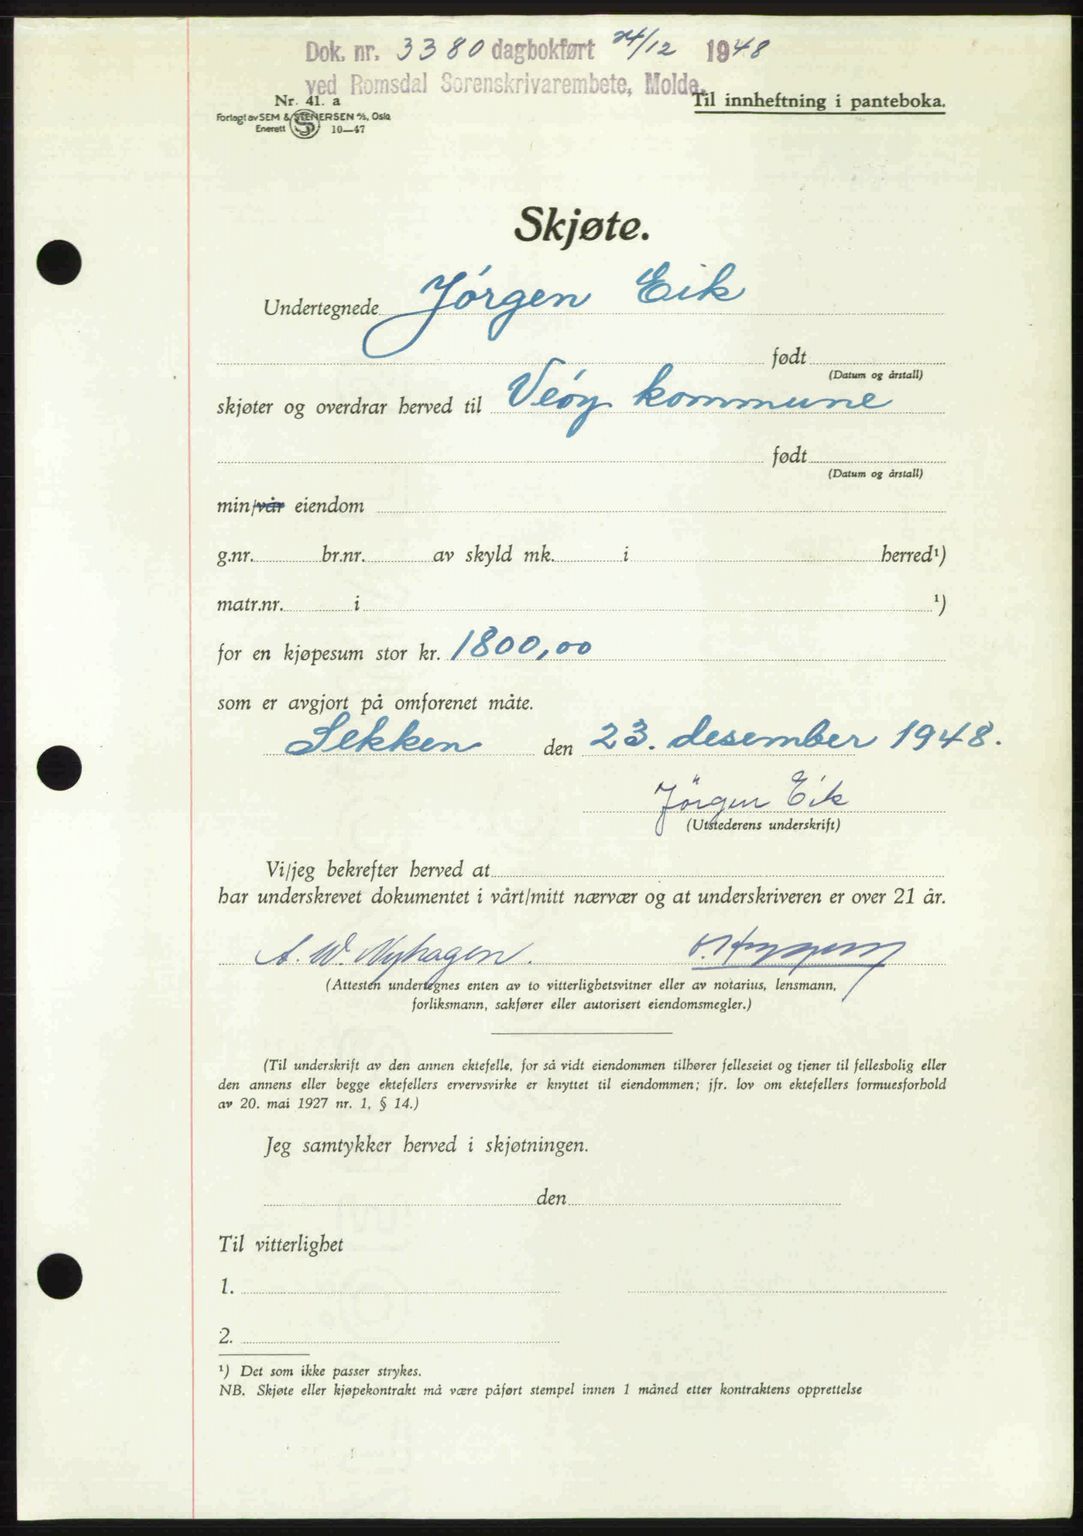 Dok. nr. 3380 dagbokført 24/12 1948
ved Romsdal Sorenskrivarembete, Molde.
Nr. 41. a
Til innheftning i panteboka.
Forlagt av SEM & STENERSEN A/S, Oslo
Enerett S 10—47
Skjøte.
Undertegnede Jórgen Eik
født
(Datum og årstall)
skjøter og overdrar herved til Veóy kommune
født
(Datum og årstall)
min/vår eiendom
g.nr. br.nr. av skyld mk. i herred¹)
matr.nr. i ¹)
for en kjøpesum stor kr. 1800,00
som er avgjort på omforenet måte.
Sekken den 23. desember 1948.
Jörgen Eik
(Utstederens underskrift)
Vi/jeg bekrefter herved at
har underskrevet dokumentet i vårt/mitt nærvær og at underskriveren er over 21 år.
A. W. Nyhagen.
(Attesten undertegnes enten av to vitterlighetsvitner eller av notarius, lensmann,
forliksmann, sakfører eller autorisert eiendomsmegler.)
(Til underskrift av den annen ektefelle, for så vidt eiendommen tilhører felleseiet og tjener til fellesbolig eller
den annens eller begge ektefellers ervervsvirke er knyttet til eiendommen; jfr. lov om ektefellers formuesforhold
av 20. mai 1927 nr. 1, § 14.)
Jeg samtykker herved i skjøtningen.
den
Til vitterlighet
1.
2.
¹) Det som ikke passer strykes.
NB. Skjøte eller kjøpekontrakt må være påført stempel innen 1 måned etter kontraktens opprettelse